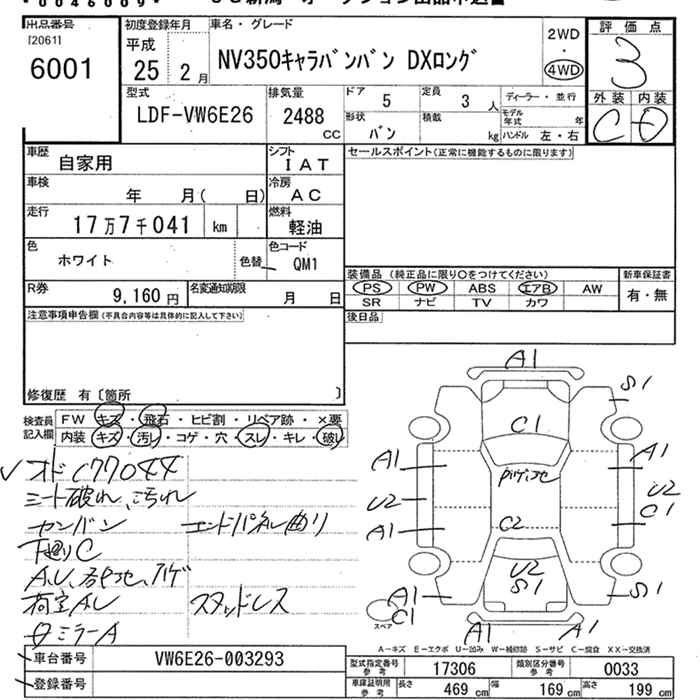 *0046009*
出品番号
[2061]
6001
初度登録年月
平成
25 2月
車名・グレード
NV350キャラバンバン DXロング
2WD
・
4WD
評価点
3
外装 内装
C D
型式
LDF-VW6E26
排気量
2488
CC
ドア
5
定員
3 人
ディーラー・並行
モデル年式 年
形状
バン
積載
kg
ハンドル 左・右
車歴
自家用
シフト
IAT
セールスポイント(正常に機能するものに限ります)
車検
年 月( 日)
冷房
AC
走行
17万7千041 km
燃料
軽油
色
ホワイト
色替
色コード
QM1
装備品 (純正品に限り○をつけてください)
新車保証書
PS PW ABS エアB AW
SR ナビ TV カワ
有・無
R券
9,160円
名変通知期限
月 日
後日品
注意事項申告欄(不具合内容等は具体的に記入して下さい)
修復歴 有〔箇所 〕
検査員記入欄
FW キズ・飛石・ヒビ割・リペア跡・×要
内装 キズ・汚レ・コゲ・穴・スレ・キレ・破レ
シート破れ、汚れ
エンドパネル曲り
下廻りC
スタッドレス
ミラーA
A1
S1
C1
A1
A1
U2
U2
C1
A1
C2
U2
S1
A1
C1
スペア
S1
A1
A1
A-キズ E-エクボ U-凹み W-補修跡 S-サビ C-腐食 XX-交換済
車台番号
VW6E26-003293
登録番号
型式指定番号
参考
17306
類別区分番号
参考
0033
車庫証明用
参考
長さ
469 cm
幅
169 cm
高さ
199 cm